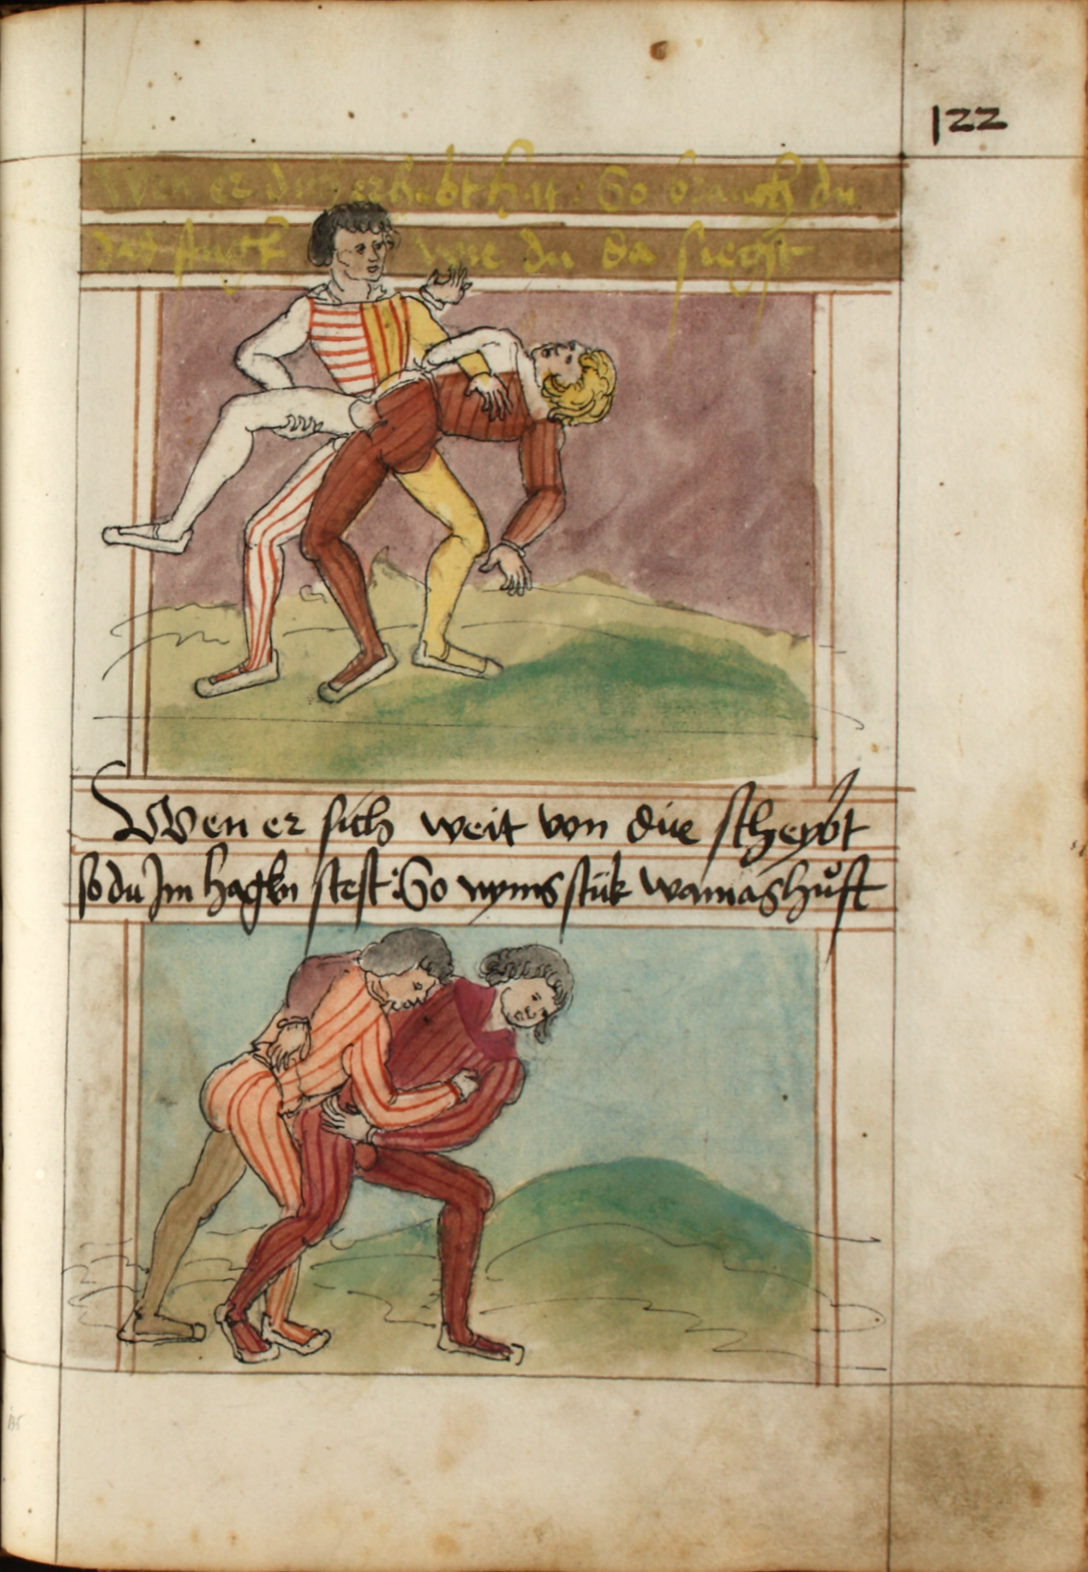 122
Wen er dich erhebt hat : So brauch du
das stuck wie du da siechst
Wen er sich weit von dir scheybt
so du Im hagkn stest : So nyms stük wamashuft